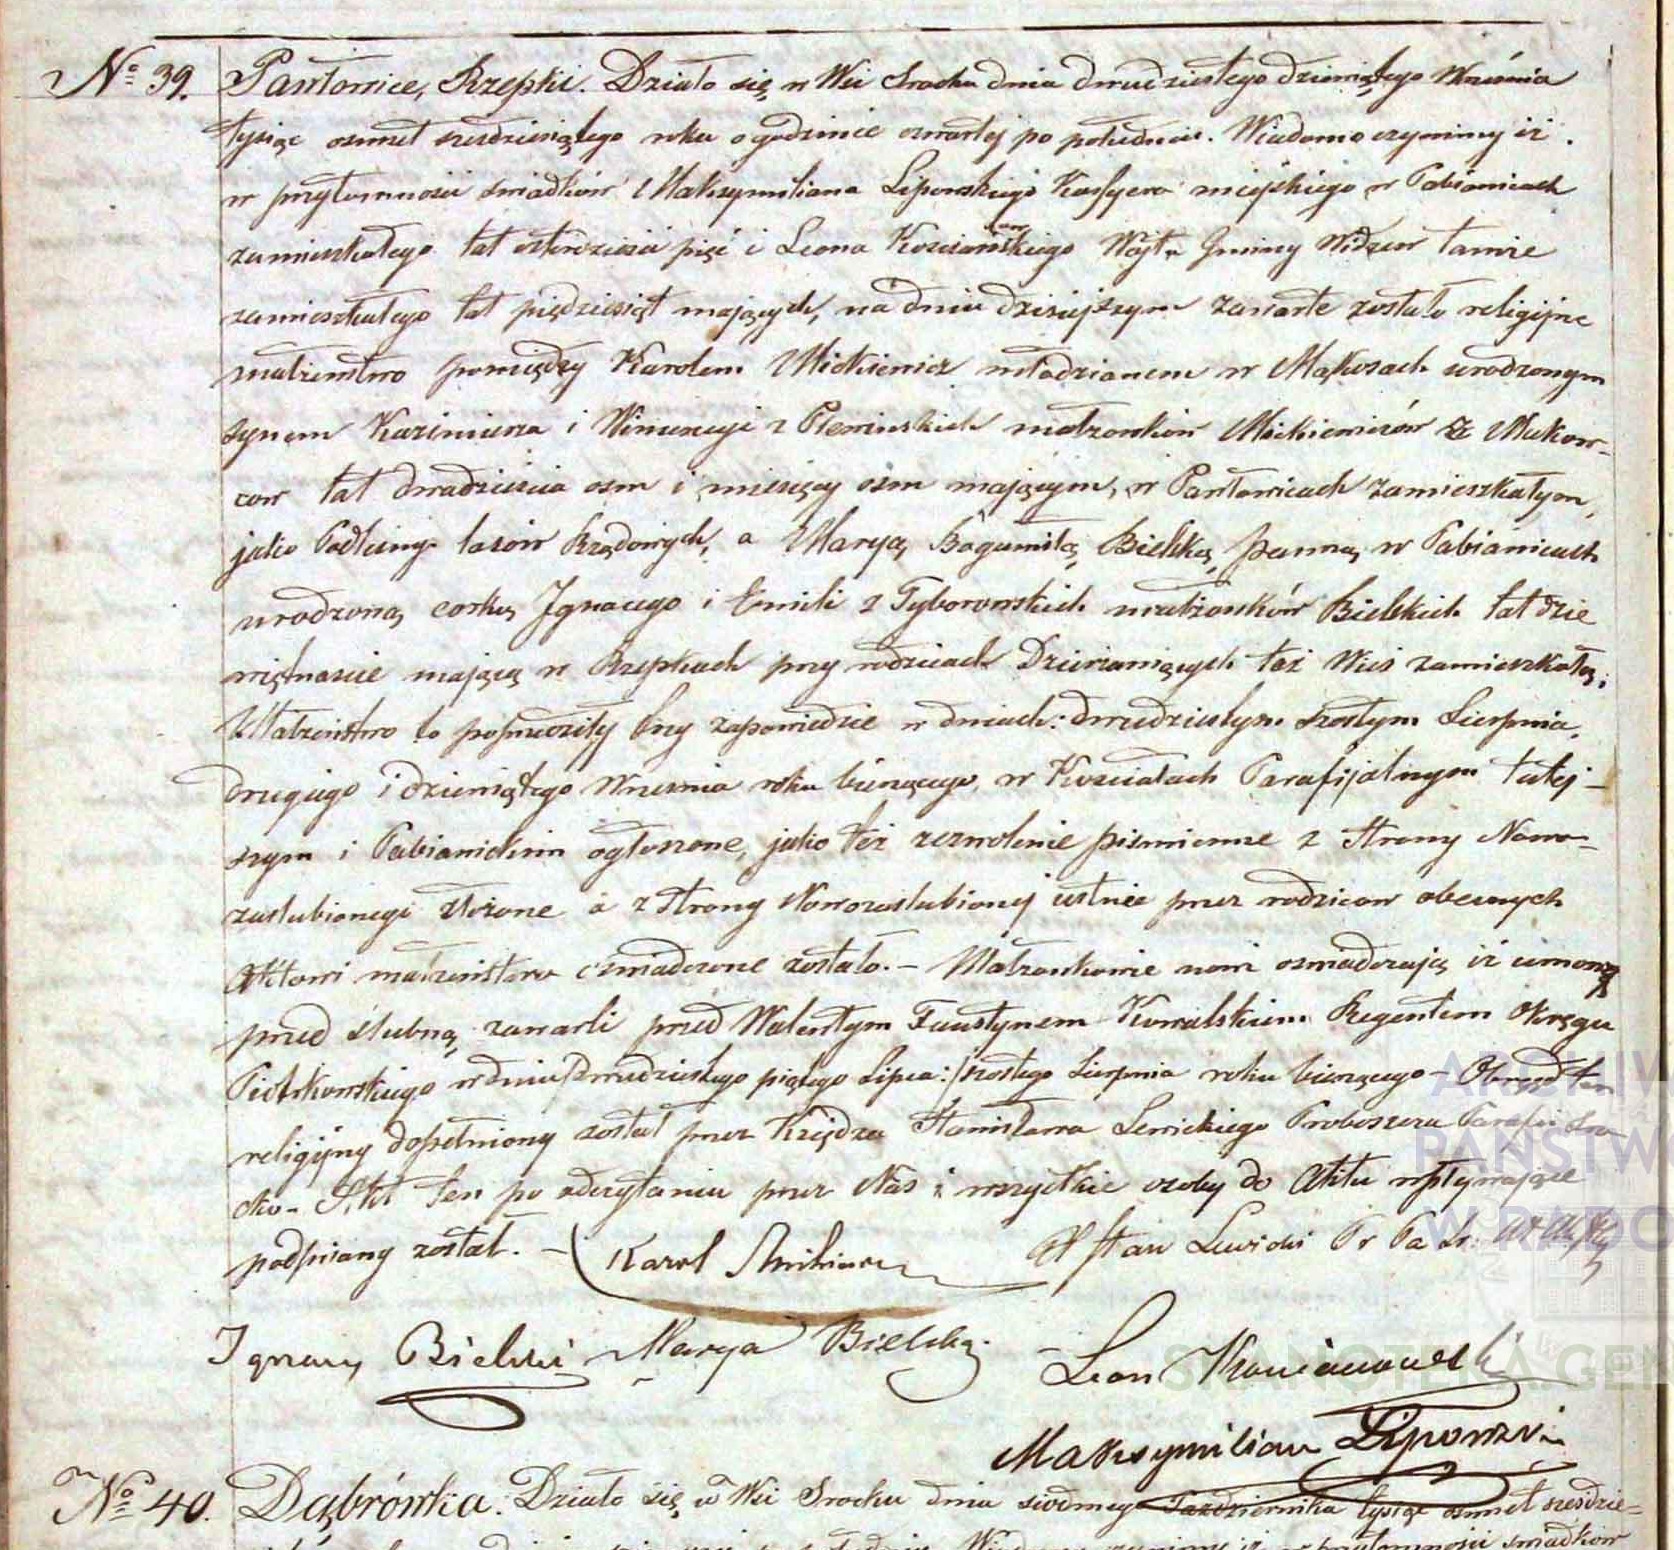 No 39. Pawłowice, Rzepki. Działo się w Wsi Srocku dnia dwudziestego dziewiątego Września
tysiąc osmset sześdziesiątego roku o godzinie czwartej po południu. Wiadomo czynimy iż
w przytomności świadków Maksymiliana Liporskiego Kassyera miejskiego w Pabianicach
zamieszkałego lat czterdzieści pięć i Leona Kościanowskiego Wójta Gminy Widzew tamże
zamieszkałego lat pięćdziesiąt mających, na dniu dzisiejszym zawarte zostało religijne
małżeństwo pomiędzy Karolem Mickiewicz młodzianem w Mąkosach urodzonym
synem Kazimierza i Wincencyi z Plewinskich małżonków Mickiewiczów z Makow-
cow lat dwadzieścia osm i miesięcy osm mającym, w Pawłowicach zamieszkałym,
jako Podleśny lasów Rządowych, a Maryą Bogumiłą Bielską panną w Pabianicach
urodzoną corką Ignacego i Emilii z Tyborowskich małżonków Bielskich lat dzie
więtnaście mającą w Rzepkach przy rodzicach Dzierżawiących też Wieś zamieszkałą.
Małżeństwo to poprzedziły trzy zapowiedzie w dniach: dwudziestym szostym Sierpnia,
drugiego i dziewiątego Września roku bieżącego, w Kościołach Parafijalnym tutej-
szym i Pabianickim ogłoszone, jako też zezwolenie piśmienne z strony Nowo-
zaslubionego złożone a z strony Nowozaslubionej ustnie przez rodzicow obecnych
Aktowi małżeństwa oświadczone zostało.- Małżonkowie nowi oswiadczają iż umowę
przed ślubną zawarli przed Walentym Faustynem Kowalskim Regentem Okręgu
Piotrkowskiego w dniu /dwudziestego piątego Lipca:/ szostego Sierpnia roku bieżącego - Obrzęd ten
religijny dopełniony został przez Księdza Stanisława Lewickiego Proboszcza Parafii Sro
cko- Akt ten po odczytaniu przez Nas i wszystkie osoby do Aktu wpływające
podpisany został. - Karol Mickiewicz X Stan Lewicki Pr Pa Sr.
Ignacy Bielski Marya Bielska Leon Kościanowski
Maksymilian Liporski
ARCHIW
PAŃSTWO
W RADO
SKANOTEKA.GEN
No 40. Dąbrówka. Działo się w Wsi Srocku dnia siodmego Października tysiąc osmset sześdzie-